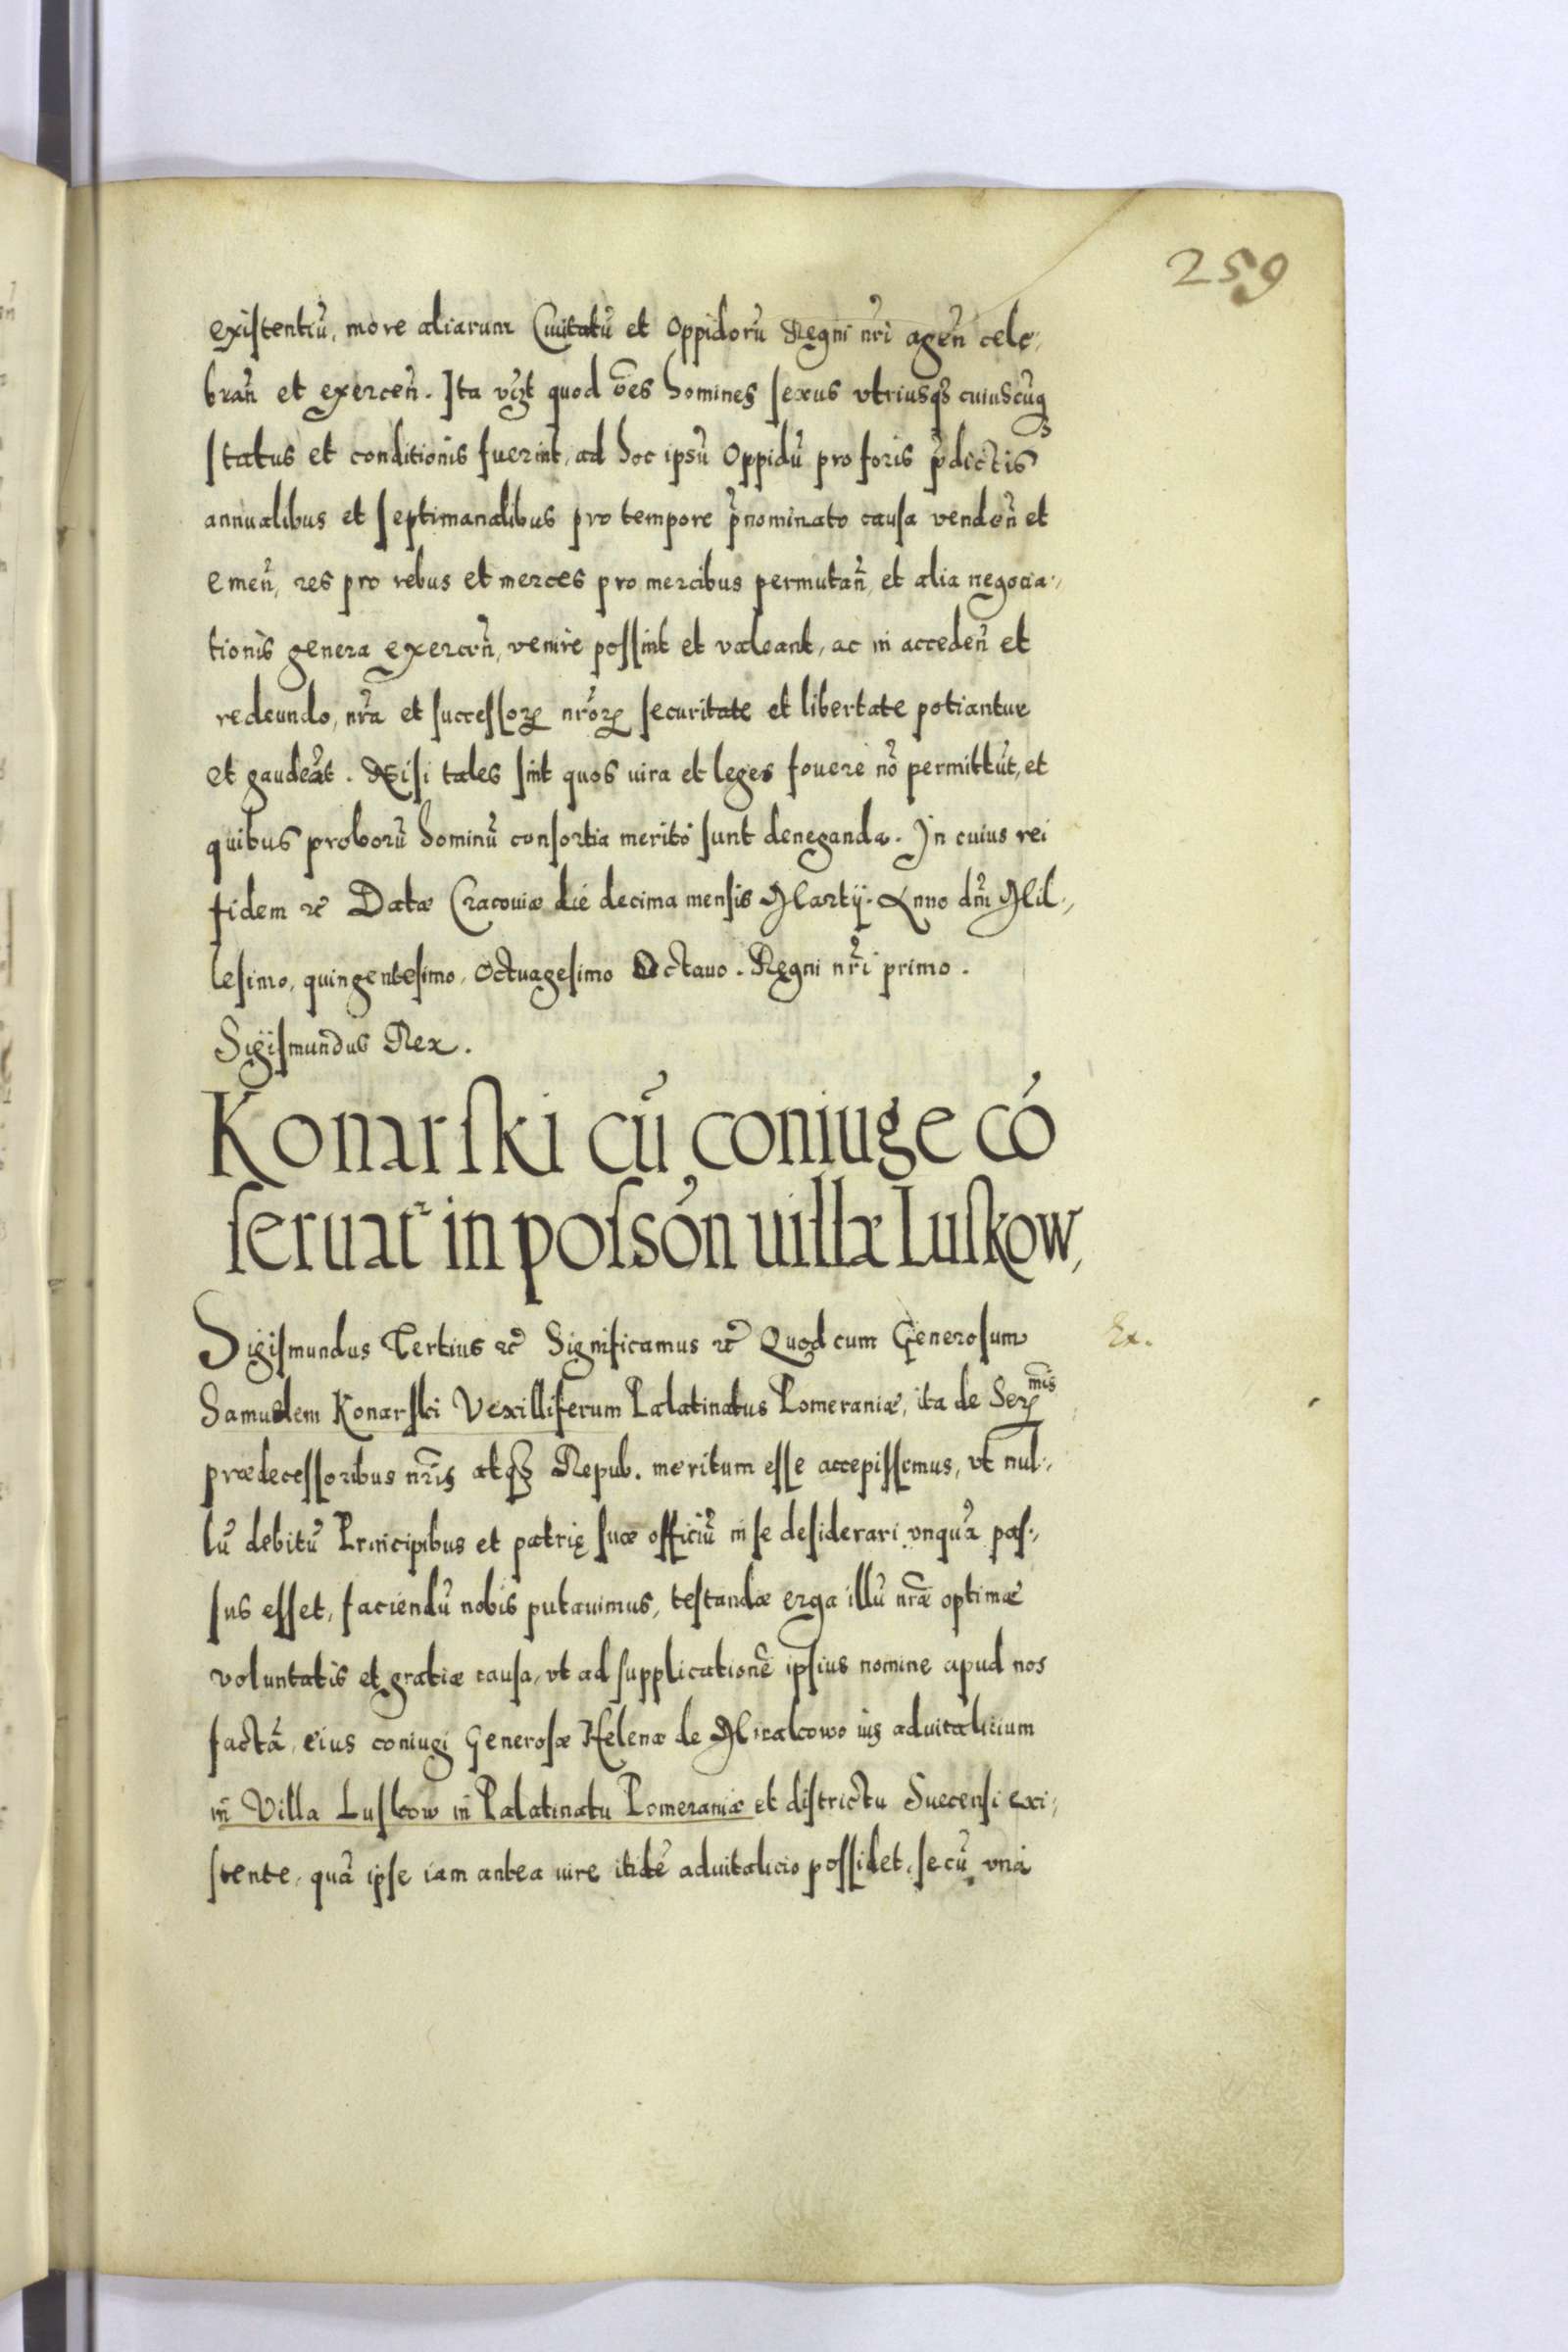 259
existentiũ, more aliarum Ciuitatũ et Oppidorũ Regni nrĩ agen̄ cele,
bran̄ et exercen̄. Ita vꝫt quod oẽs homines sexus vtriusqꝫ cuiuscũqꝫ
status et conditionis fuerint, ad hoc ipsũ Oppidũ pro foris p̄dictis
annualibus et septimanalibus pro tempore p̄nominato causa venden̄ et
emen̄, res pro rebus et merces pro mercibus permutan̄, et alia negocia,
tionis genera exercen̄, venire possint et valeant, ac in acceden̄ et
redeundo, nrã et successorꝝ nrõrꝝ securitate et libertate potiantur
et gaudeãt. Nisi tales sint quos iura et leges fouere nõ permittũt, et
quibus proborũ hominũ consortia meritò sunt deneganda. In cuius rei
fidem ꝛc̃ Datæ Cracouiæ die decima mensis Martij. Anno dn̄i Mil,
lesimo, quingentesimo, Octuagesimo Octauo. Regni nrĩ primo.
Sigismundus Rex.
Konarski cũ coniuge cõ
seruatᷣ in possõn uillæ Luskow,
Sigismundus Tertius ꝛc̃ Significamus ꝛc̃ Quod cum Generosum
Ex.
Samuelem Konarski Vexilliferum Palatinatus Pomeraniæ, ita de Serꝫmis
prædecessoribus nrĩs atqꝫ Repub. meritum esse accepissemus, vt nul,
lũ debitũ Principibus et patrię suæ officiũ in se desiderari vnquã pas,
sus esset, faciendũ nobis putauimus, testandæ erga illũ nræ̃ optimæ
voluntatis et gratiæ causa, vt ad supplicationẽ ipsius nomine apud nos
factã, eius coniugi Generosæ Helenæ de Mirakowo ius aduitalicium
in Villa Luskow in Palatinatu Pomeraniæ et districtu Suecensi exi,
stente, quã ipse iam antea iure itidẽ aduitalicio possidet, secũ vnà